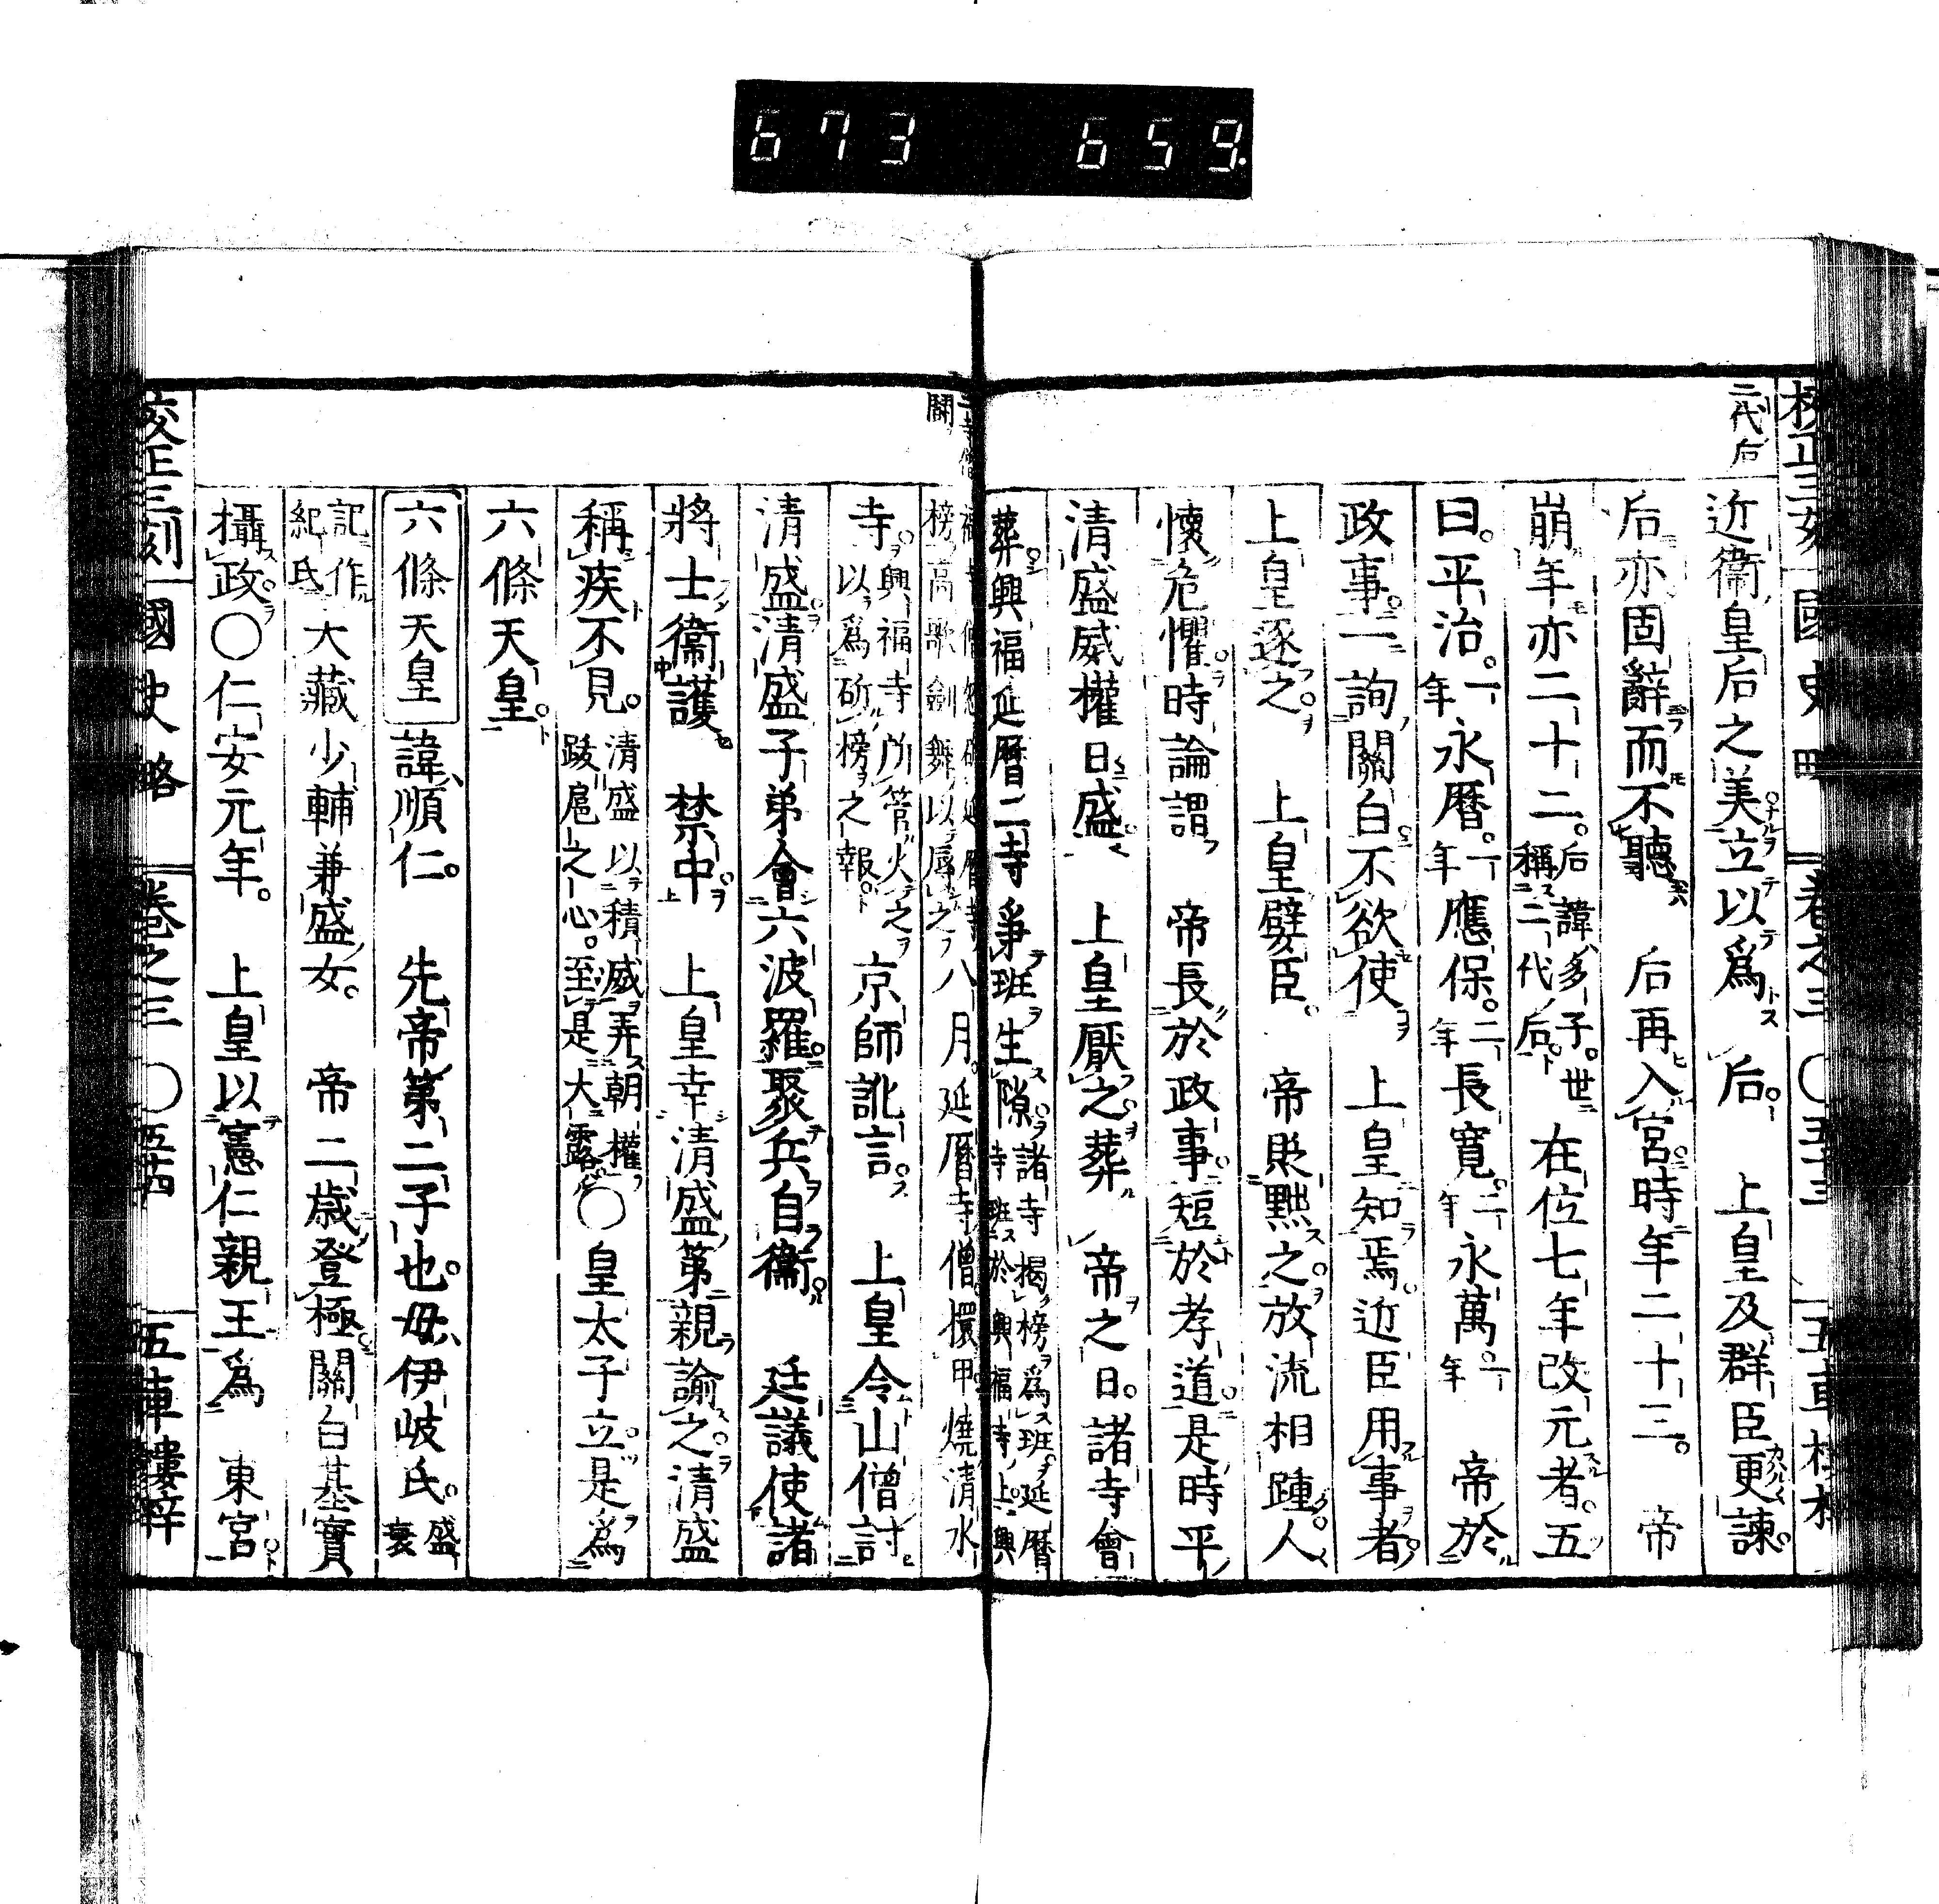 673 659.
二代后
近衞皇后之美立以爲后上皇及群臣更諫
后亦固辭而不聽后再入宮時年二十三帝
崩年亦二十二后諱多子世稱二代后在位七年改元者五
曰平治一年永曆一年應保二年長寬二年永萬一年帝於
政事一詢關白不欲使上皇知焉近臣用事者
上皇逐之上皇嬖臣帝貶黜之放流相踵人
懷危懼時論謂帝長於政事短於孝道是時平
清盛威權日盛上皇厭之葬帝之日諸寺會
葬興福延曆二寺爭班生隙諸寺揭榜爲班延曆寺班於興福寺上興
榜高歌劍舞以辱之八月延曆寺僧擐甲燒清水
寺興福寺所管火之以爲斫榜之報京師訛言上皇令山僧討
清盛清盛子弟會六波羅聚兵自衞廷議使諸
將士衞護禁中上皇幸清盛第親諭之清盛
稱疾不見清盛以積威弄朝權跋扈之心至是大露〇皇太子立是爲
六條天皇
六條天皇諱順仁先帝第二子也母伊岐氏盛衰
記作紀氏大藏少輔兼盛女帝二歳登極關白基實
攝政〇仁安元年上皇以憲仁親王爲東宮
國史略 卷之三 〇五十四 五車樓梓